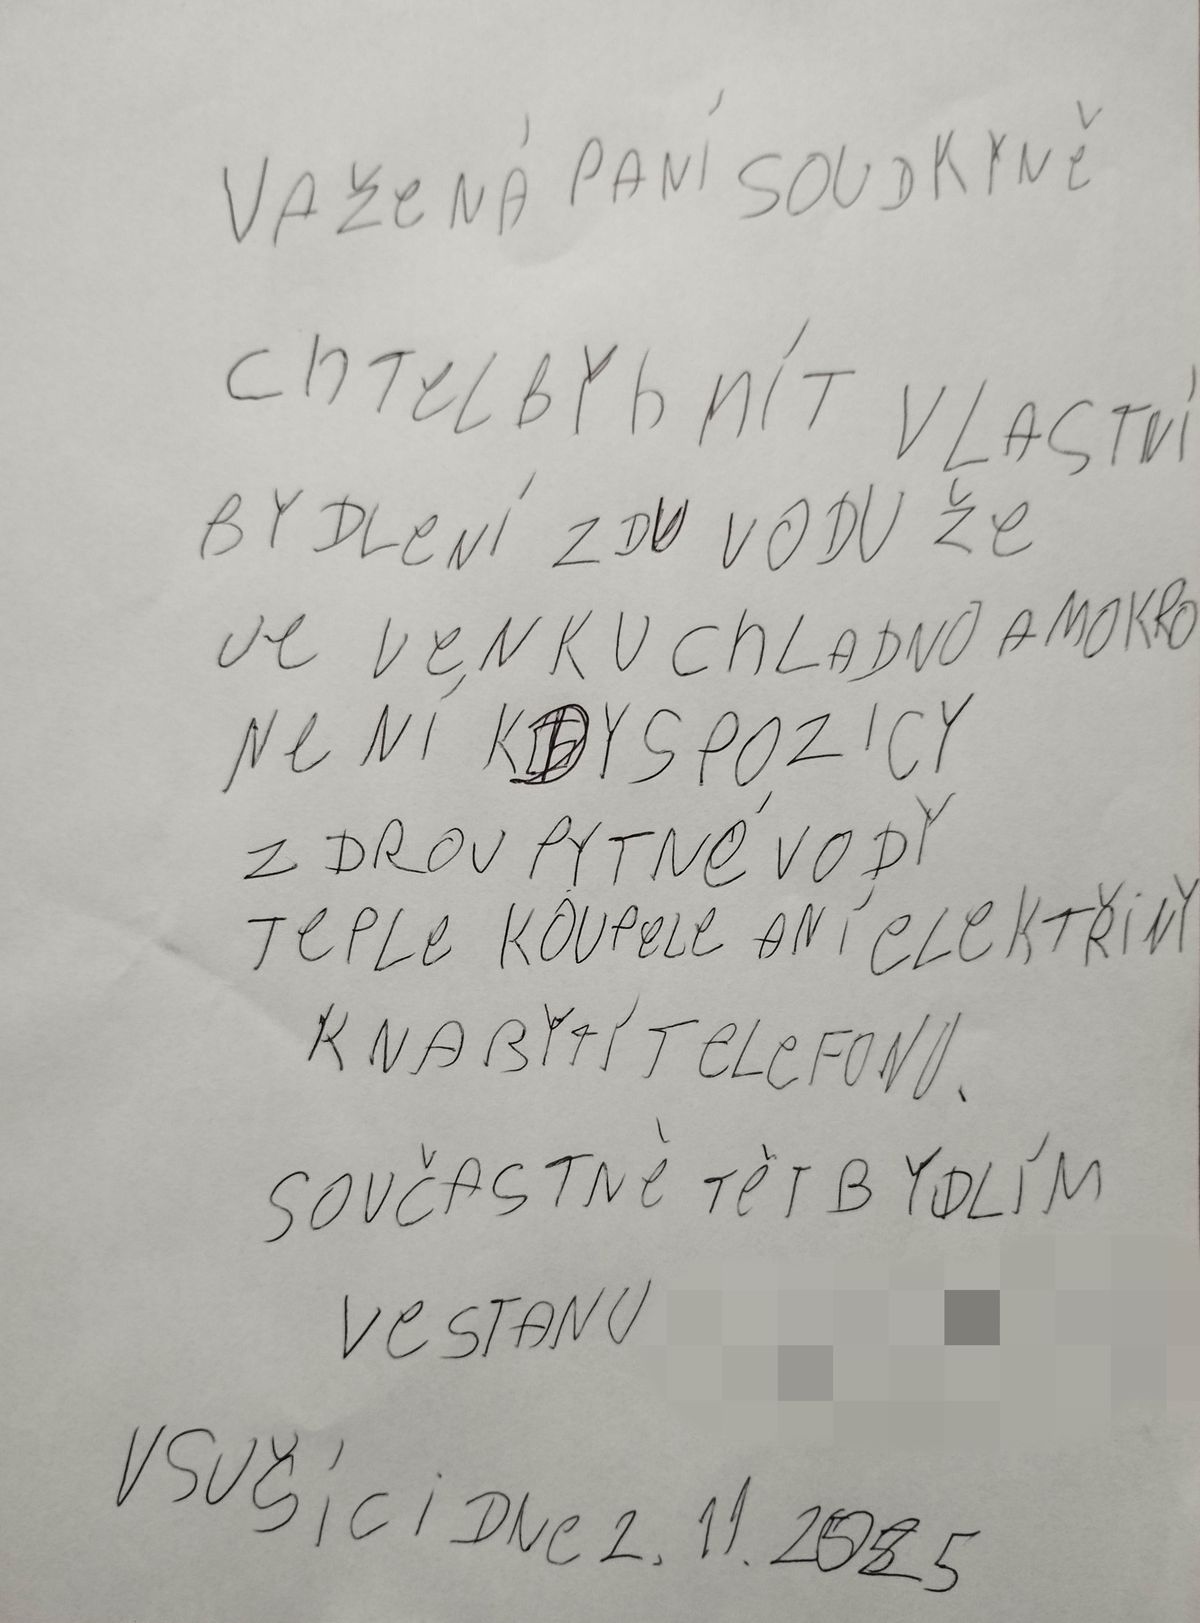 VAŽENÁ PANÍ SOUDKYNĚ
CHTEL BYH MÍT VLASTNÍ
BYDLENÍ Z DU VODU ŽE
VE VENKU CHLADNO A MOKRO
NENÍ K DYSPOZICY
ZDROU PYTNÉ VODY
TEPLE KOUPELE ANÍ ELEKTŘINY
K NABYTÍ TELEFONU.
SOUČASTNĚ TĚT BYDLÍM
VE STANU
V SUŠÍCI DNE 2. 11. 2025